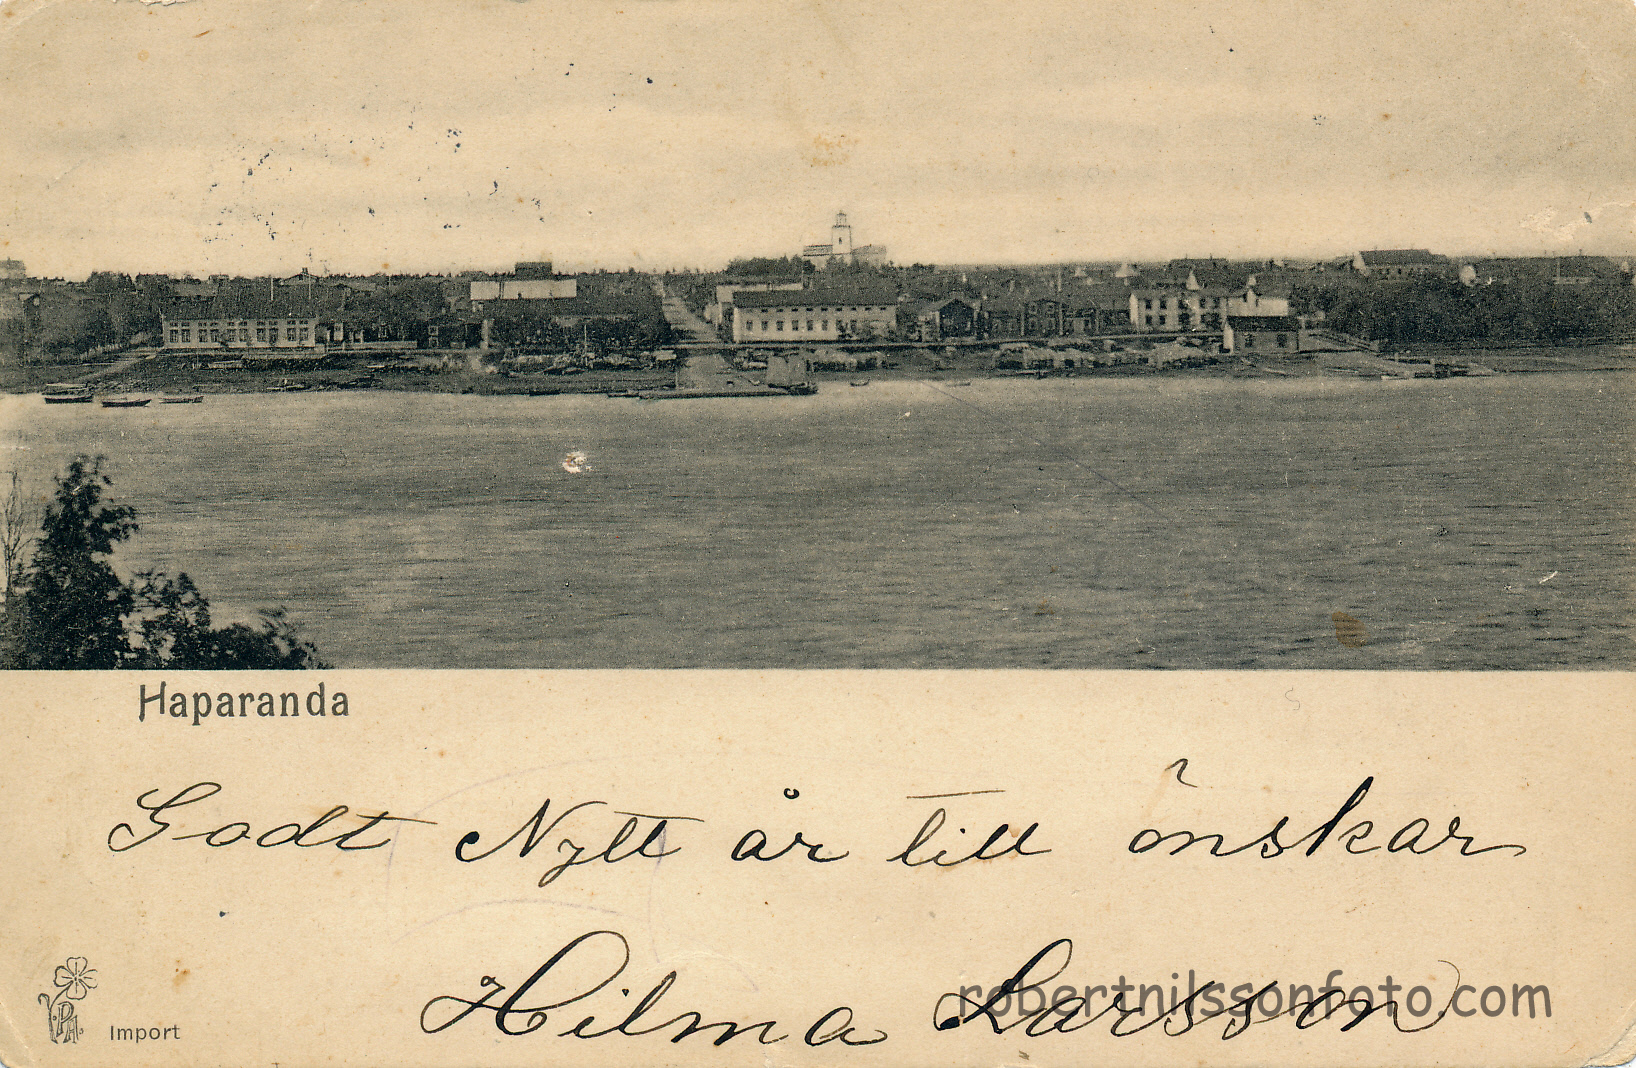 Haparanda
Godt Nytt år till önskar
Hilma Larsson
robertnilssonfoto.com
PA
Import